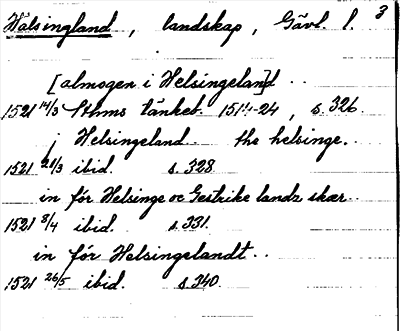 Hälsingland, landskap, Gävl. l. 3
[almogen i Helsingeland] ..
1521 14/3 Sthms tänkeb. 1514-24, s. 326.
i Helsingeland the helsinge..
1521 21/3 ibid. s. 328
in för Helsinge oc Gestrike landz skær..
1521 8/4 ibid. s. 331.
in för Helsingelandt..
1521 26/5 ibid. s. 340.